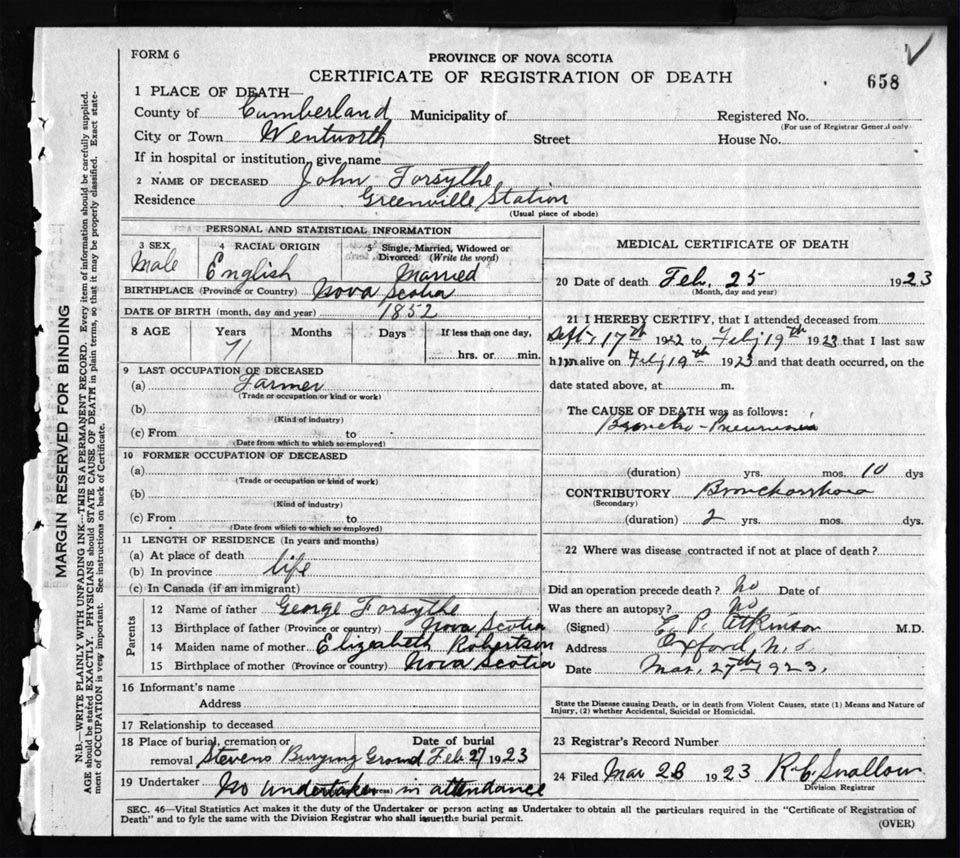 FORM 6
PROVINCE OF NOVA SCOTIA
CERTIFICATE OF REGISTRATION OF DEATH
658
1 PLACE OF DEATH—
County of Cumberland Municipality of Registered No.
(For use of Registrar General only
City or Town Wentworth Street House No.
If in hospital or institution, give name
2 NAME OF DECEASED John Forsythe
Residence Greenville Station
(Usual place of abode)
PERSONAL AND STATISTICAL INFORMATION
3 SEX Male
4 RACIAL ORIGIN English
5 Single, Married, Widowed or Divorced (Write the word) Married
BIRTHPLACE (Province or Country) Nova Scotia
DATE OF BIRTH (month, day and year) 1852
8 AGE Years Months Days If less than one day,
71 hrs. or min.
9 LAST OCCUPATION OF DECEASED
(a) Farmer
(Trade or occupation or kind or work)
(b)
(Kind of industry)
(c) From to
(Date from which to which so employed)
10 FORMER OCCUPATION OF DECEASED
(a)
(Trade or occupation or kind of work)
(b)
(Kind of industry)
(c) From to
(Date from which to which so employed)
11 LENGTH OF RESIDENCE (In years and months)
(a) At place of death
(b) In province life
(c) In Canada (if an immigrant)
Parents
12 Name of father George Forsythe
13 Birthplace of father (Province or country) Nova Scotia
14 Maiden name of mother Elizabeth Robertson
15 Birthplace of mother (Province or country) Nova Scotia
16 Informant's name
Address
17 Relationship to deceased
18 Place of burial, cremation or Date of burial
removal Stevens Burying Ground Feb 27 1923
19 Undertaker No undertaker in attendance
MEDICAL CERTIFICATE OF DEATH
20 Date of death Feb. 25 1923
(Month, day and year)
21 I HEREBY CERTIFY, that I attended deceased from
Sept 17th 1922 to Feb 19th 1923 that I last saw
him alive on Feb 19th 1923 and that death occurred, on the
date stated above, at m.
The CAUSE OF DEATH was as follows:
Broncho-Pneumonia
(duration) yrs. mos. 10 dys
CONTRIBUTORY Bronchorrhoea
(Secondary)
(duration) 2 yrs. mos. dys.
22 Where was disease contracted if not at place of death?
Did an operation precede death? No Date of
Was there an autopsy? No
(Signed) E. P. Atkinson M.D.
Address Oxford, N.S.
Date Mar. 27th 1923.
State the Disease causing Death, or in death from Violent Causes, state (1) Means and Nature of
Injury, (2) whether Accidental, Suicidal or Homicidal.
23 Registrar's Record Number
24 Filed Mar 28 1923 R. C. Swallow
Division Registrar
SEC. 46—Vital Statistics Act makes it the duty of the Undertaker or person acting as Undertaker to obtain all the particulars required in the "Certificate of Registration of
Death" and to fyle the same with the Division Registrar who shall issue the burial permit.
(OVER)
MARGIN RESERVED FOR BINDING
N.B.—WRITE PLAINLY WITH UNFADING INK—THIS IS A PERMANENT RECORD. Every item of information should be carefully supplied.
AGE should be stated EXACTLY. PHYSICIANS should STATE CAUSE OF DEATH in plain terms, so that it may be properly classified. Exact state-
ment of OCCUPATION is very important. See instructions on back of Certificate.